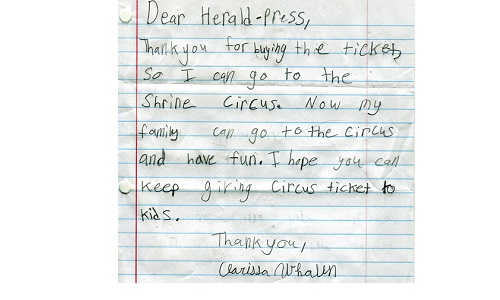 Dear Herald-Press,
Thank you for buying the ticket,
So I can go to the
Shrine Circus. Now my
family can go to the circus
and have fun. I hope you can
keep giving Circus ticket to
kids.
Thank you,
Clarissa Whalen